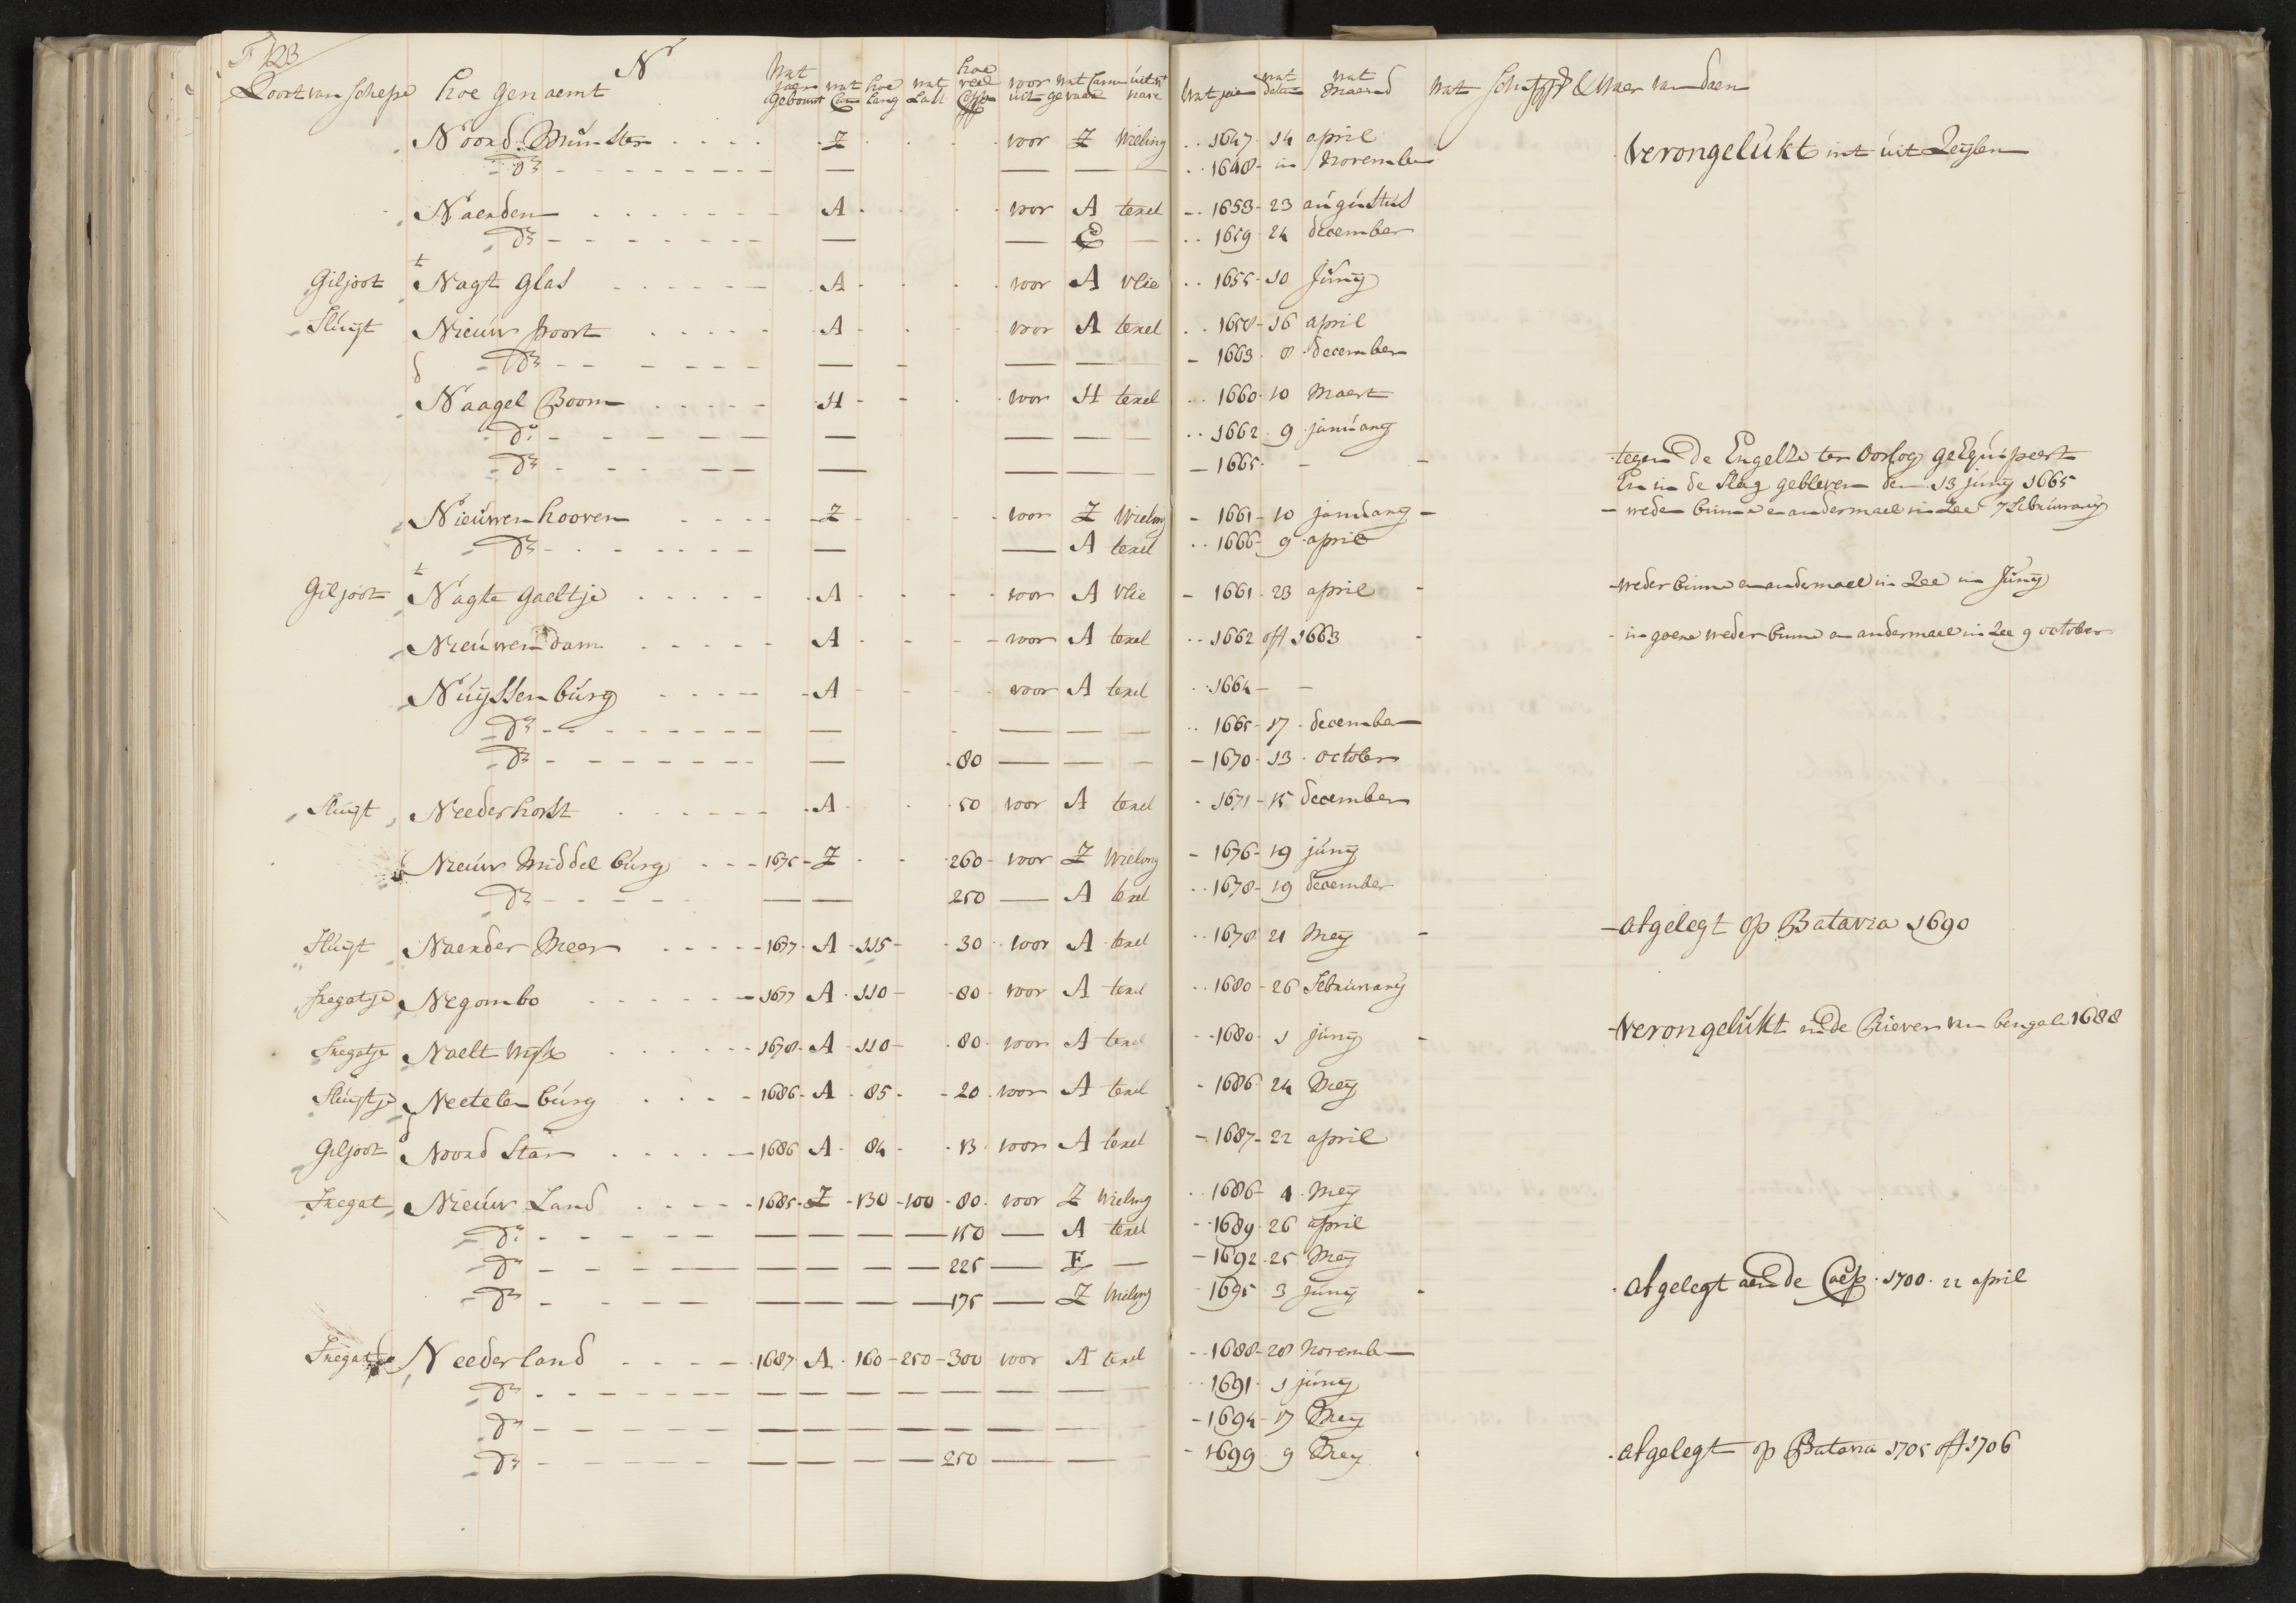 F 123
N
Soort van schepe hoe genaemt wat jaer gebouwt wat Cam hoe lang wat Last hoe veel Copp voor wat Camer uit gevaar uit wat vare wat jaer wat datum wat Maend wat Schipp & Waer van daen
Noord Munster . . . . Z . . . . voor Z Wieling . . 1647 . 14 april
do — — — — . . 1648 - in November verongelukt int uit Zeylen
Naerden . . . . A . . . voor A texel - . 1653 - 23 augustus
do — — E — . . 1659 . 24 december
Giljoot Nagt glas . . . . A . . . . voor A vlie . . 1655 - 10 Juny
Fluyt Nieuw poort . . . . A . . . voor A texel . . 1658 - 16 april
do — — — — - 1663 . 8 december
Naagel Boom . . . . H - - . . voor H texel . . 1660 . 10 Maert
do — — — — . . 1662 . 9 january
do — — — — - 1665 - - tegen de Engelze ter oorlog geEquipeert
En in de slag gebleven den 13 juny 1665
Nieuwenhooven . . . . Z . . . voor Z Wieling - 1661 - 10 january - - weder binne en andermael in Zee 7 Februwary
do — — A texel . . 1666 - 9 april
Giljoot Nagte gaeltje . . . . A - - - voor A vlie - 1661 - 23 april - - weder binne en andermael in Zee in Juny
Nieuwendam . . . . A - - - - voor A texel . . 1662 off 1663 - - in goere weder binne en andermael in Zee 9 october
Nuyssenburg . . . . A . . . voor A texel . . 1664 - -
do — — — — . . 1665 - 17 - december
do — . 80 — — — - 1670 - 13 . october
Fluyt Neederhorst . . . . A . . . 50 voor A texel . 1671 - 15 december
Nieuw Middel burg - - - 1675 - Z . - . 260 - voor Z Wieling - 1676 - 19 juny
do — — 250 — A texel . . 1678 - 19 december
Fluyt Naerder Meer . . . . 1677 - A - 115 - . 30 . voor A texel . . 1678 21 Mey - - afgelegt op Batavia 1690
fregatje Negombo . . . . 1677 A . 110 - . 80 . voor A texel . . 1680 - 26 Februwary
Fregatje Naelt Wyk . . . . 1678 - A - 110 - . 80 . voor A texel - - 1680 . 1 juny - - verongelukt inde Rievier van bengale 1688
Fluytje Neetelenburg . . . - 1686 - A . 85 - - 20 . voor A texel - 1686 24 Mey
Giljoot Noord Star . . . . 1686 A . 84 - . 13 . voor A texel - 1687 - 22 april
Fregat Nieuw Land . . . . 1685 - Z - 130 - 100 - 80 . voor Z Wieling . . 1686 - 4 . Mey
do — — — — 150 — A texel - - 1689 . 26 april
do — — — — 225 — E — - 1692 . 25 Mey
do — — — — 175 — Z Wieling - 1695 . 3 juny - . afgelegt aende Caep . 1700 . 22 april
Fregat Neederland . . . . 1687 . A . 160 - 250 - 300 voor A texel - - 1688 - 28 November
do — — — — — — — — . . 1691 . 1 juny
do — — — — — — — — - 1694 - 17 Mey
do — — — — 250 — — — - 1699 . 9 Mey . . afgelegt op Batavia 1705 off 1706